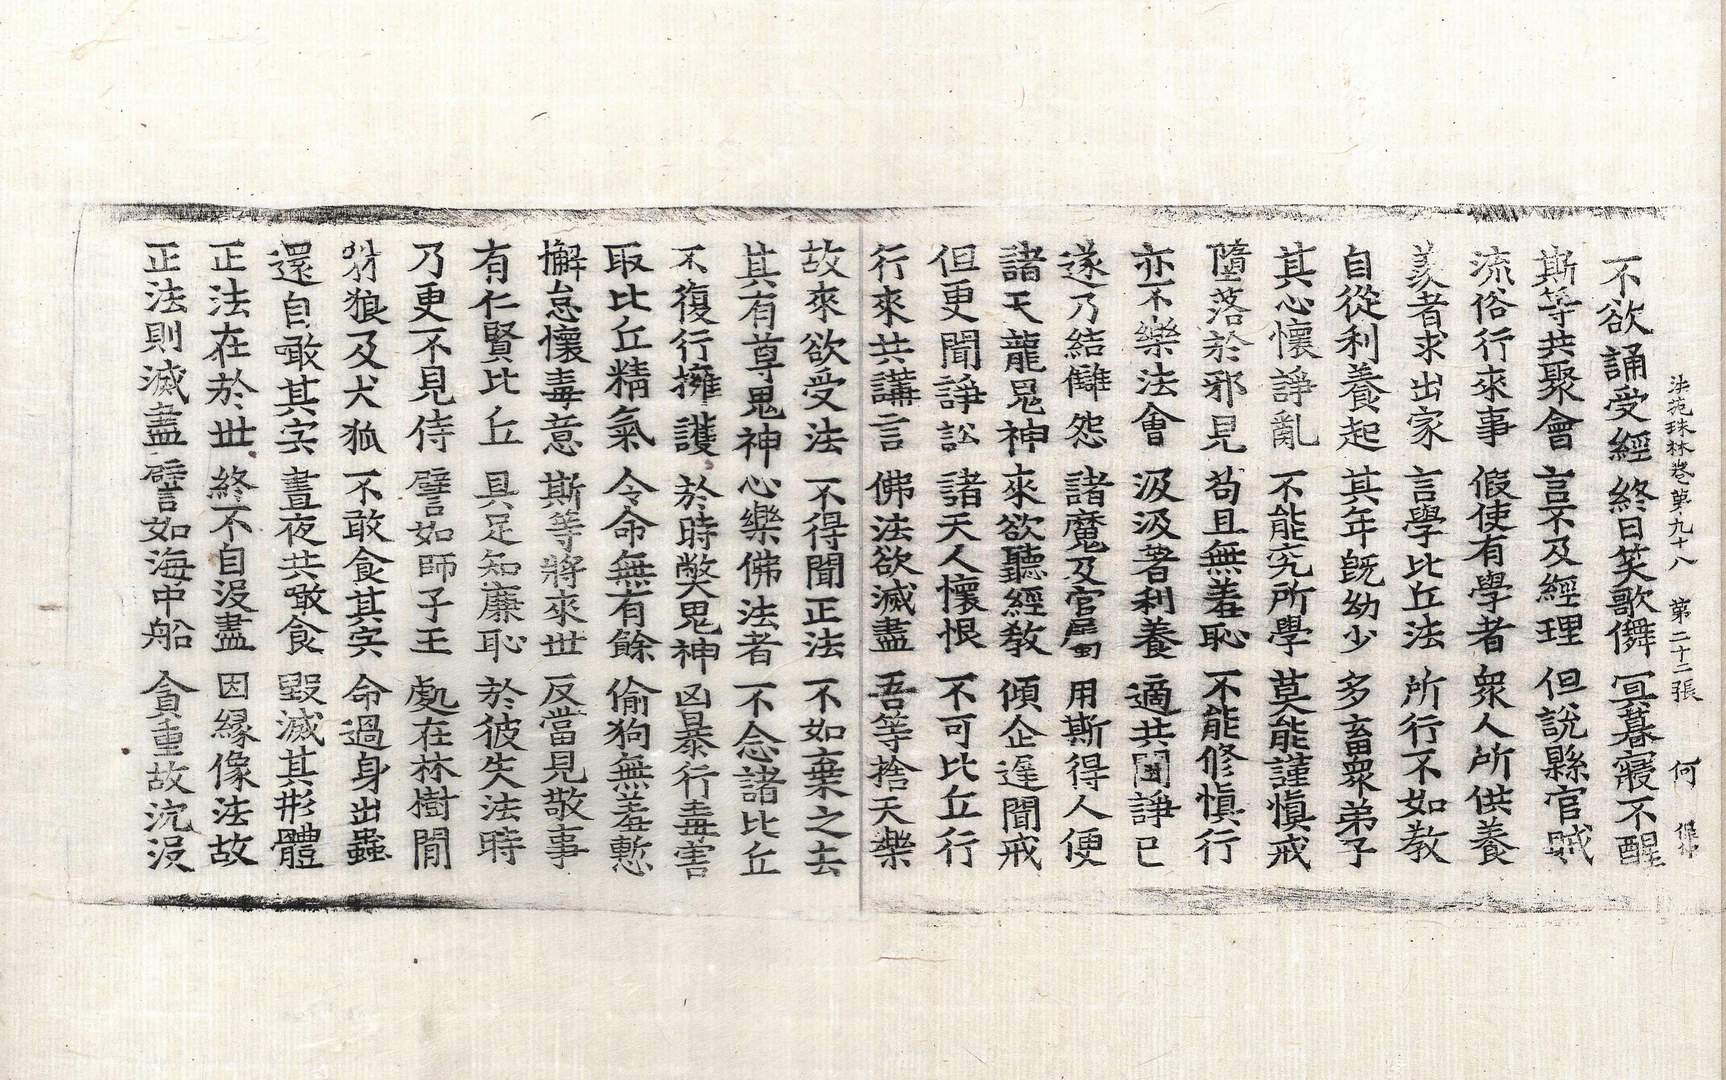 法苑珠林卷第九十八 第二十二張 何
不欲誦受經 終日笑歌儛 冥暮寢不醒
斯等共聚會 言不及經理 但說縣官賊
流俗行來事 假使有學者 眾人所供養
羨者求出家 言學比丘法 所行不如教
自從利養起 其年旣幼少 多畜眾弟子
其心懷諍亂 不能究所學 莫能謹慎戒
墮落於邪見 苟且無羞恥 不能修慎行
亦不樂法會 汲汲著利養 適共鬪諍已
遂乃結讎怨 諸魔及官屬 用斯得人便
諸天龍鬼神 來欲聽經教 傾企遲聞戒
但更聞諍訟 諸天人懷恨 不可比丘行
行來共講言 佛法欲滅盡 吾等捨天樂
故來欲受法 不得聞正法 不如棄之去
其有尊鬼神 心樂佛法者 不念諸比丘
不復行擁護 於時獘鬼神 凶暴行毒害
取比丘精氣 令命無有餘 偷狗無羞慙
懈怠懷毒意 斯等將來世 反當見敬事
有仁賢比丘 具足知廉恥 於彼失法時
乃更不見侍 譬如師子王 處在林樹閒
豺狼及犬狐 不敢食其宍 命過身出蟲
還自噉其宍 晝夜共噉食 毀滅其形體
正法在於世 終不自沒盡 因緣像法故
正法則滅盡 譬如海中船 貪重故沉沒